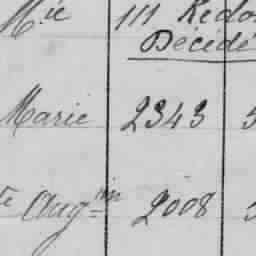 M.ie 111 Redo
Décédé
Marie 2343 5
te Aug.tin 2008